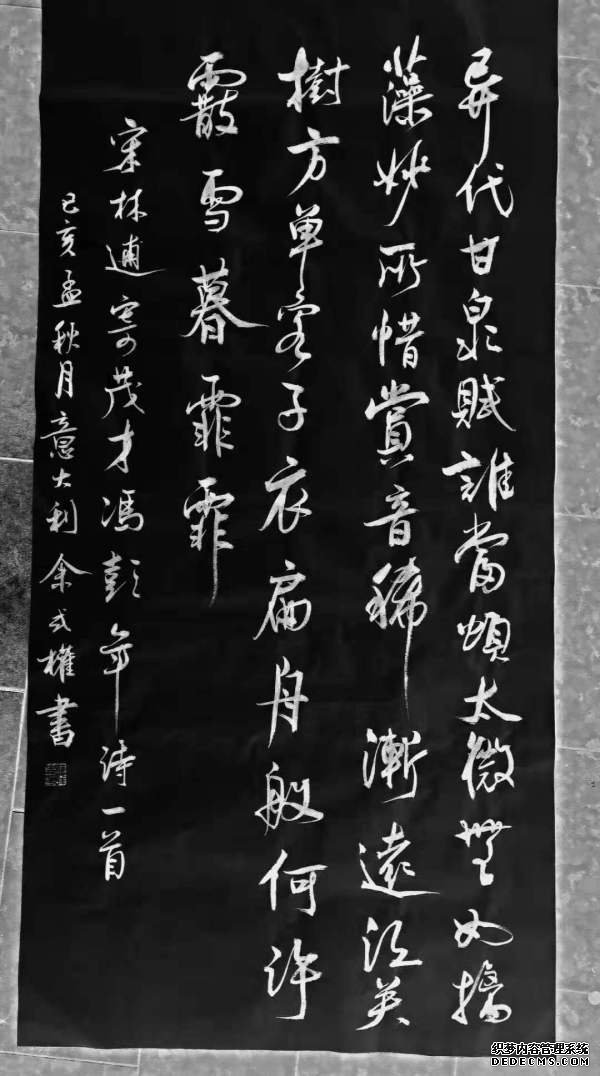 异代甘泉賦誰當頌太微無如摛
藻妙所惜賞音稀漸遠江关
樹方单客子衣扁舟何許
霰雪暮霏霏
宋林逋寄茂才馮彭年詩一首
己亥孟秋月意大利余權書
织梦内容管理系统
DEDECMS.COM